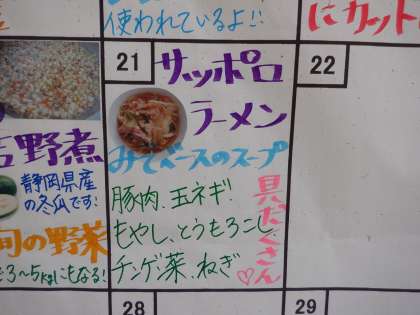 使われているよ!!
にカット
21
サッポロ
ラーメン
みそベースのスープ
豚肉、玉ネギ
もやし、とうもろこし
チンゲン菜、ねぎ
具だくさん♡
22
野煮
静岡県産
の冬瓜です!
旬の野菜
3～5kgにもなる!
28
29